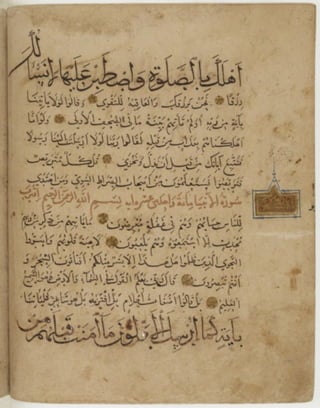 اهلك بالصلوة واصطبر عليها لا نسالك
رزقا نحن نرزقك والعاقبة للتقوى وقالوا لولا ياتينا
باية من ربه اولم تاتهم بينة ما في الصحف الاولى ولو انا
اهلكناهم بعذاب من قبله لقالوا ربنا لولا ارسلت الينا رسولا
فنتبع اياتك من قبل ان نذل ونخزى قل كل متربص
فتربصوا فستعلمون من اصحاب الصراط السوي ومن اهتدى
سورة الانبيا مائة واحدى عشر بسم الله الرحمن الرحيم اقترب
للناس حسابهم وهم في غفلة معرضون ما ياتيهم من ذكر من ربهم
محدث الا استمعوه وهم يلعبون لاهية قلوبهم واسروا
النجوى الذين ظلموا هل هذا الا بشر مثلكم افتاتون السحر و
انتم تبصرون قال ربي يعلم القول في السماء والارض وهو السميع
العليم بل قالوا اضغاث احلام بل افتريه بل هو شاعر فلياتنا
باية كما ارسل الاولون ما امنت قبلهم من